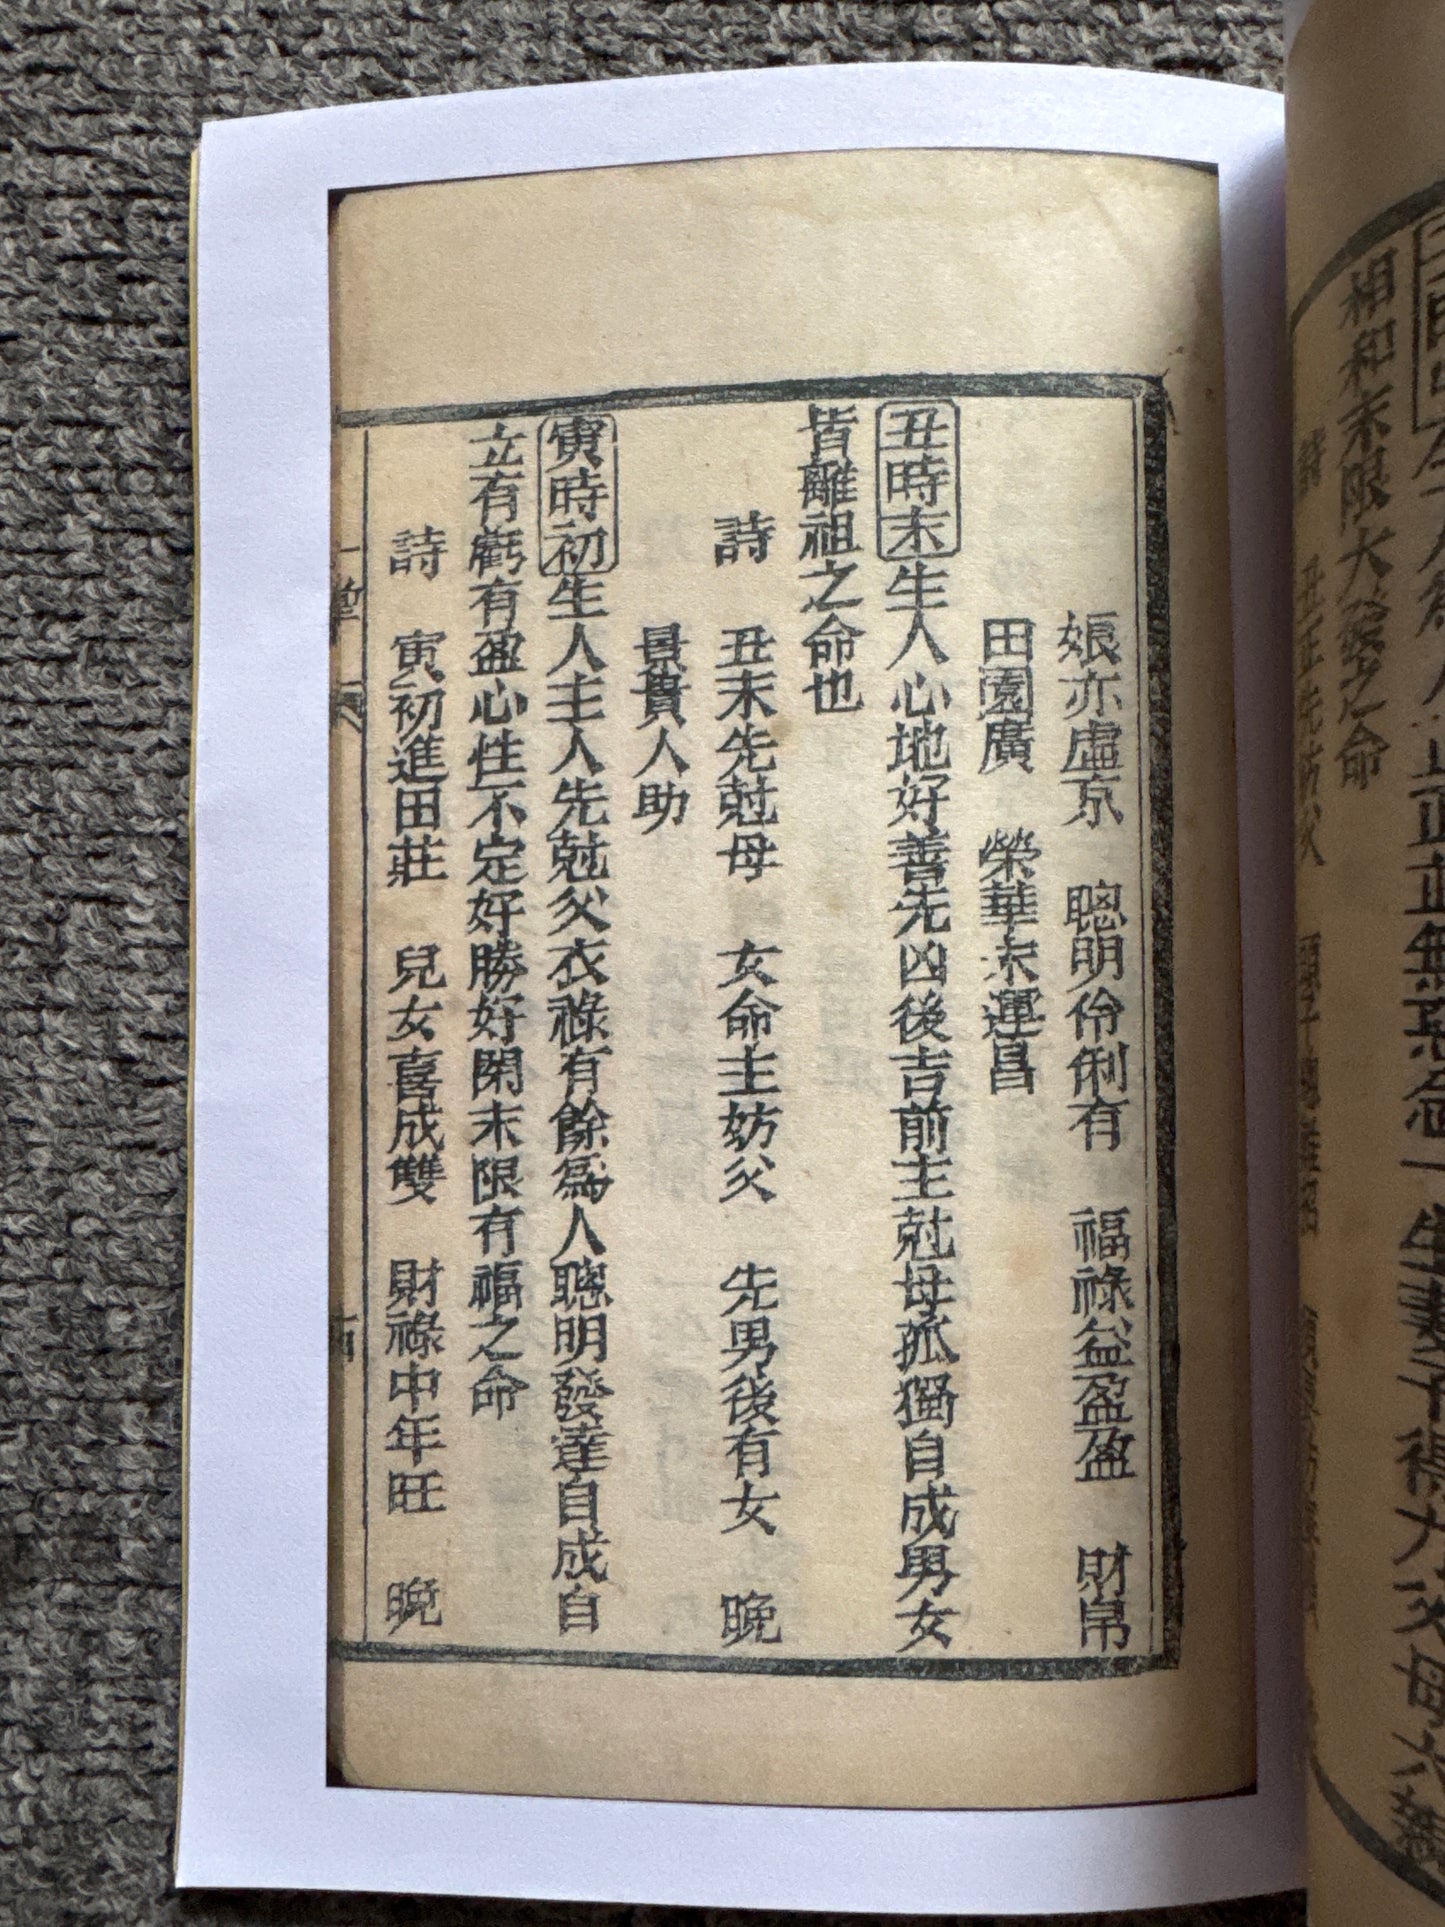 娘亦虛京　聰明伶俐有　福祿益盈盈　財帛
田園廣　榮華末運昌
丑時末生人心地好善先凶後吉前主尅母孤獨自成男女
皆離祖之命也
詩　丑末先尅母　女命主妨父　先男後有女　晚
景貴人助
寅時初生人主人先尅父衣祿有餘爲人聰明發達自成自
立有虧有盈心性不定好勝好閑末限有福之命
詩　寅初進田莊　兒女喜成雙　財祿中年旺　晚
相和末限大發之命